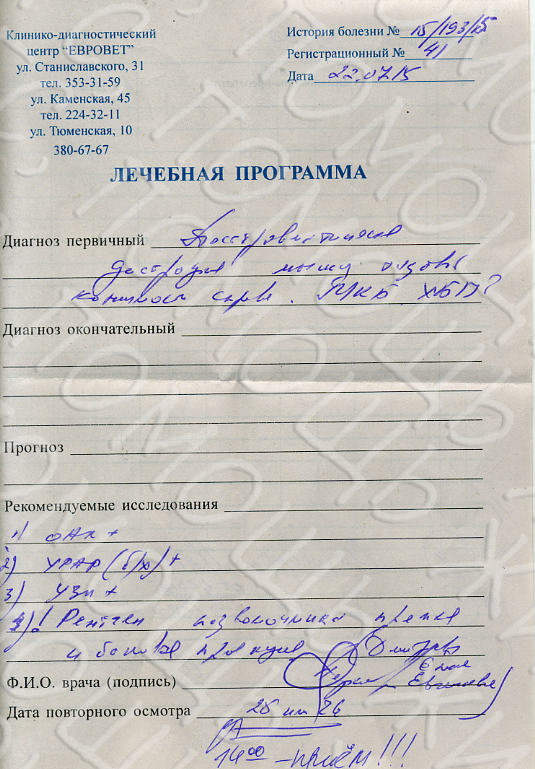 Клинико-диагностический
центр "ЕВРОВЕТ"
ул. Станиславского, 31
тел. 353-31-59
ул. Каменская, 45
тел. 224-32-11
ул. Тюменская, 10
380-67-67
История болезни № 15/193/15
Регистрационный № 41
Дата 22.07.15
ЛЕЧЕБНАЯ ПРОГРАММА
Диагноз первичный
дистрофия мышц тазовых
конечностей справа. МКБ ХБП?
Диагноз окончательный
Прогноз
Рекомендуемые исследования
1) ОАК +
2) УРАР (б/х) +
3) УЗИ +
4)! Рентген позвоночника прямая
и боковая проекция
Ф.И.О. врача (подпись)
Дата повторного осмотра 25 или 26
14 00 - ПРИЁМ!!!